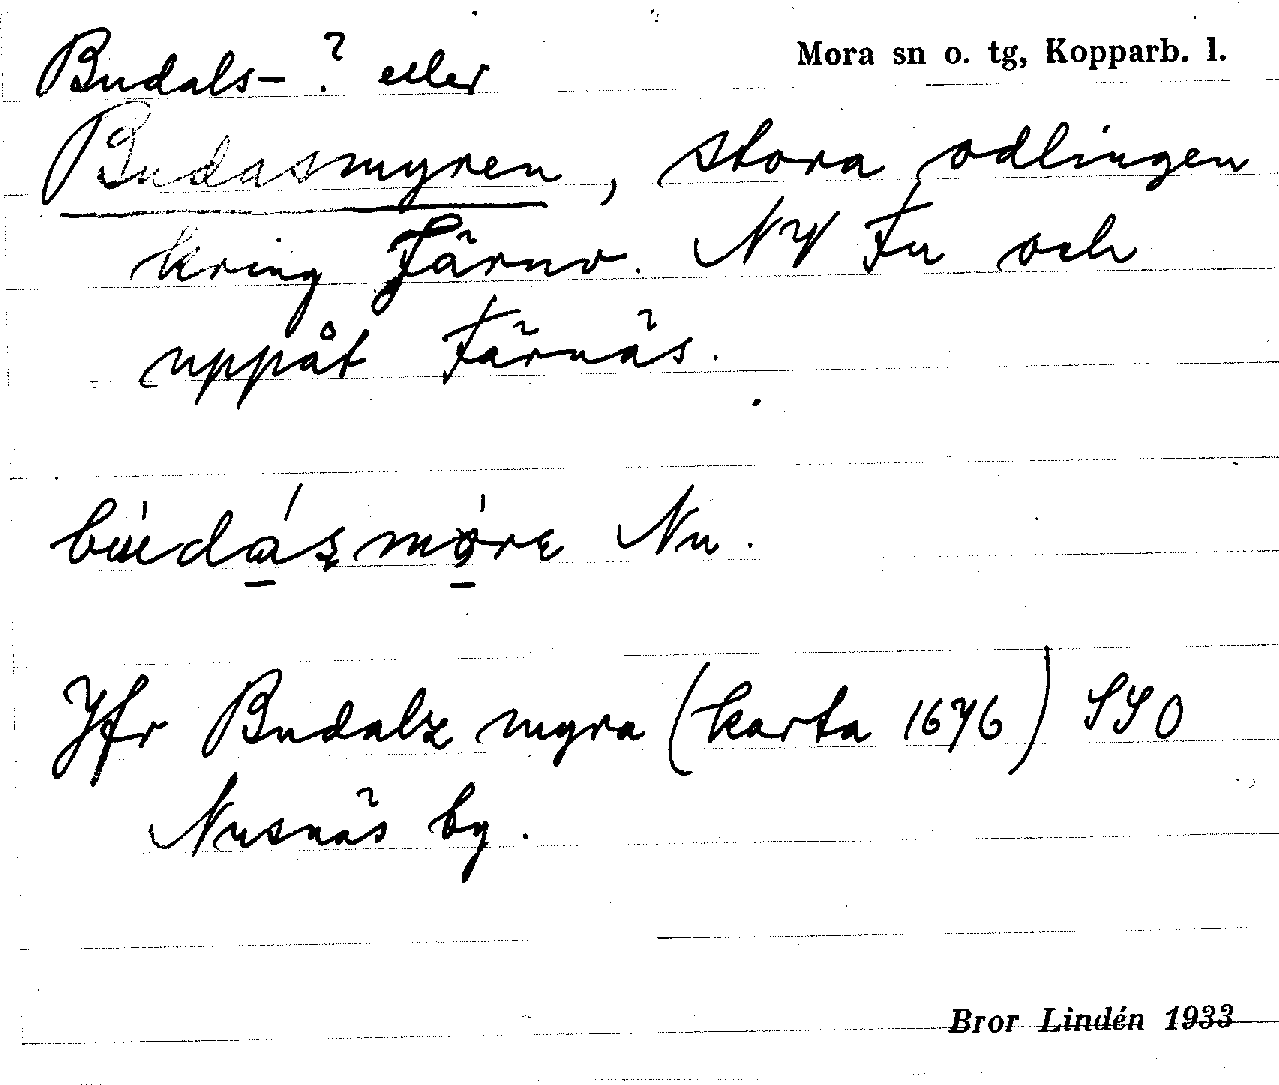 Budals-? eller
Mora sn o. tg, Kopparb. l.
Budasmyren, stora odlingen
kring Färnv. NV Fu och
uppåt Färnäs.
búdásmóre Nu.
Jfr Budalz myra (karta 1676) SSO
Nusnäs by.
Bror Lindén 1933